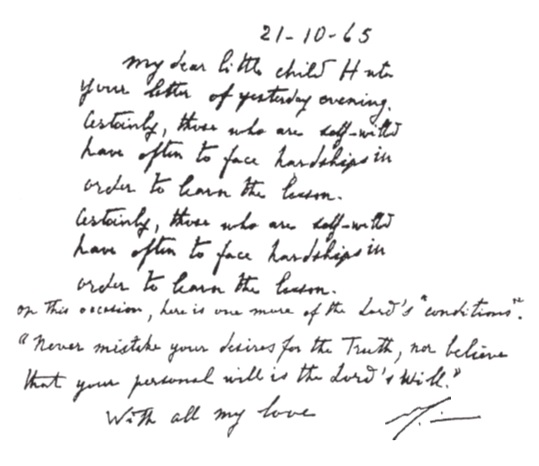 21-10-65
My dear little child Huta
your letter of yesterday evening.
Certainly, those who are self-willd
have often to face hardships in
order to learn the lesson.
Certainly, those who are self-willd
have often to face hardships in
order to learn the lesson.
on this occasion, here is one more of the Lord's "conditions".
"Never mistake your desires for the Truth, nor believe
that your personal will is the Lord's Will."
With all my love